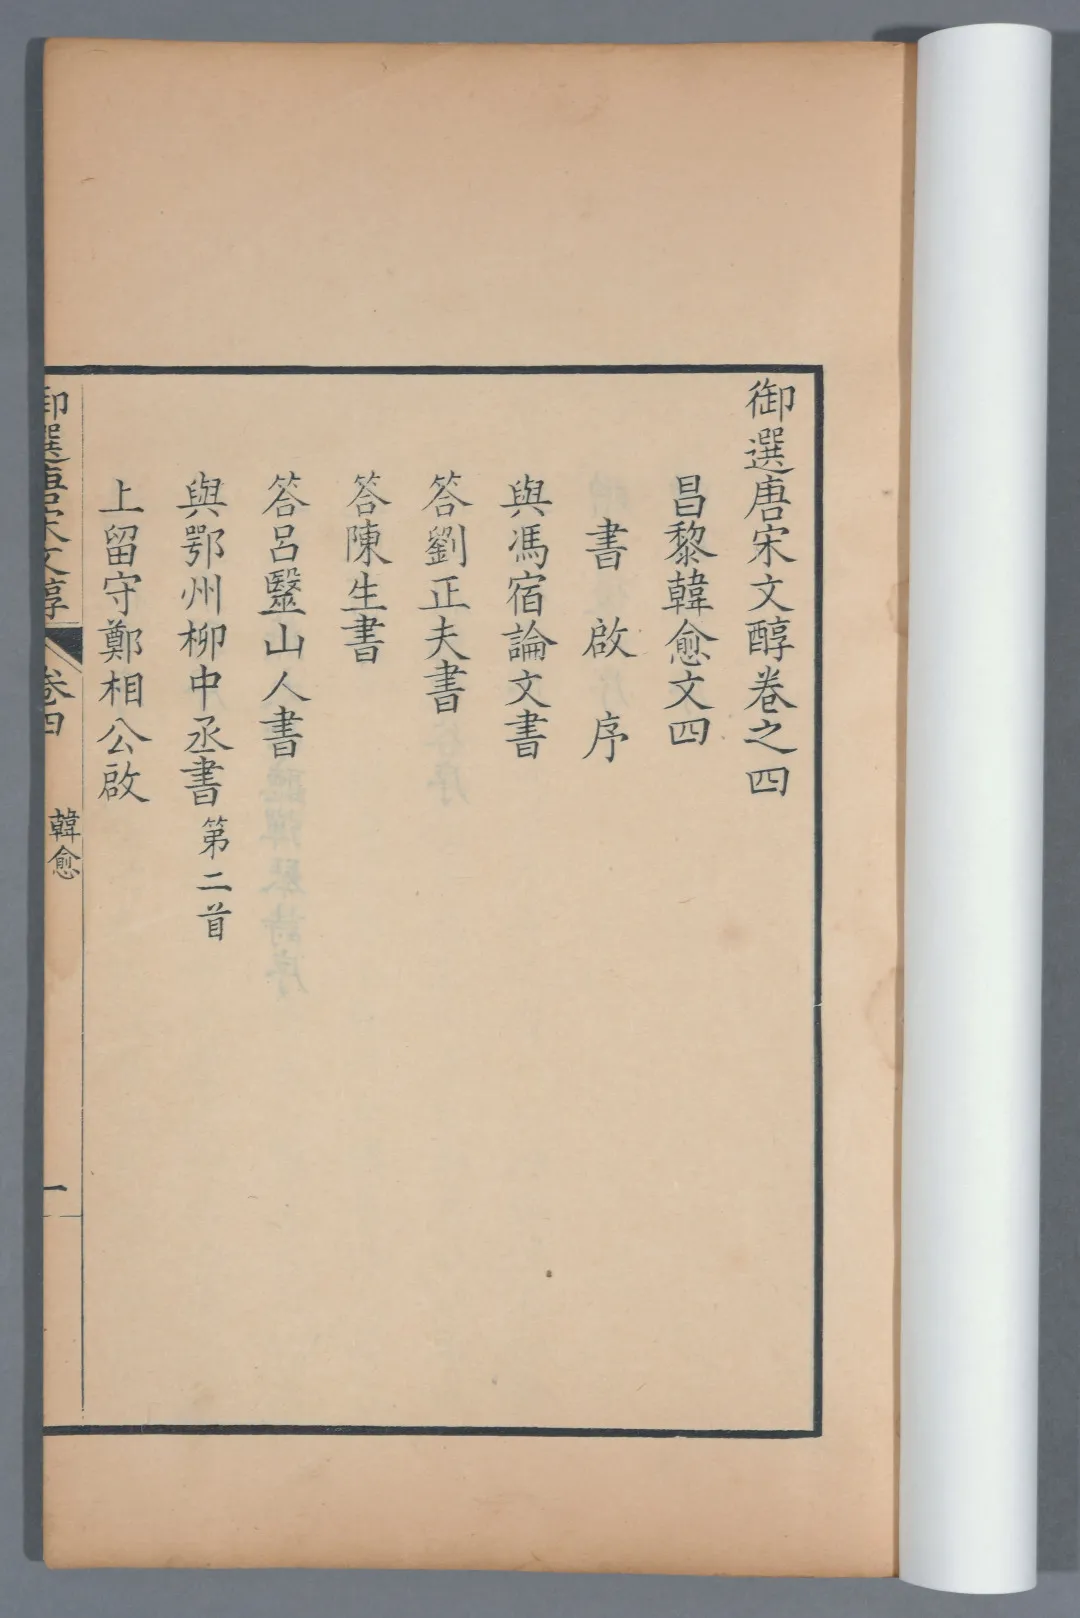 御選唐宋文醇卷之四
昌黎韓愈文四
書啟序
與馮宿論文書
答劉正夫書
答陳生書
答呂毉山人書
與鄂州柳中丞書第二首
上留守鄭相公啟
御選唐宋文醇 卷四 韓愈 一